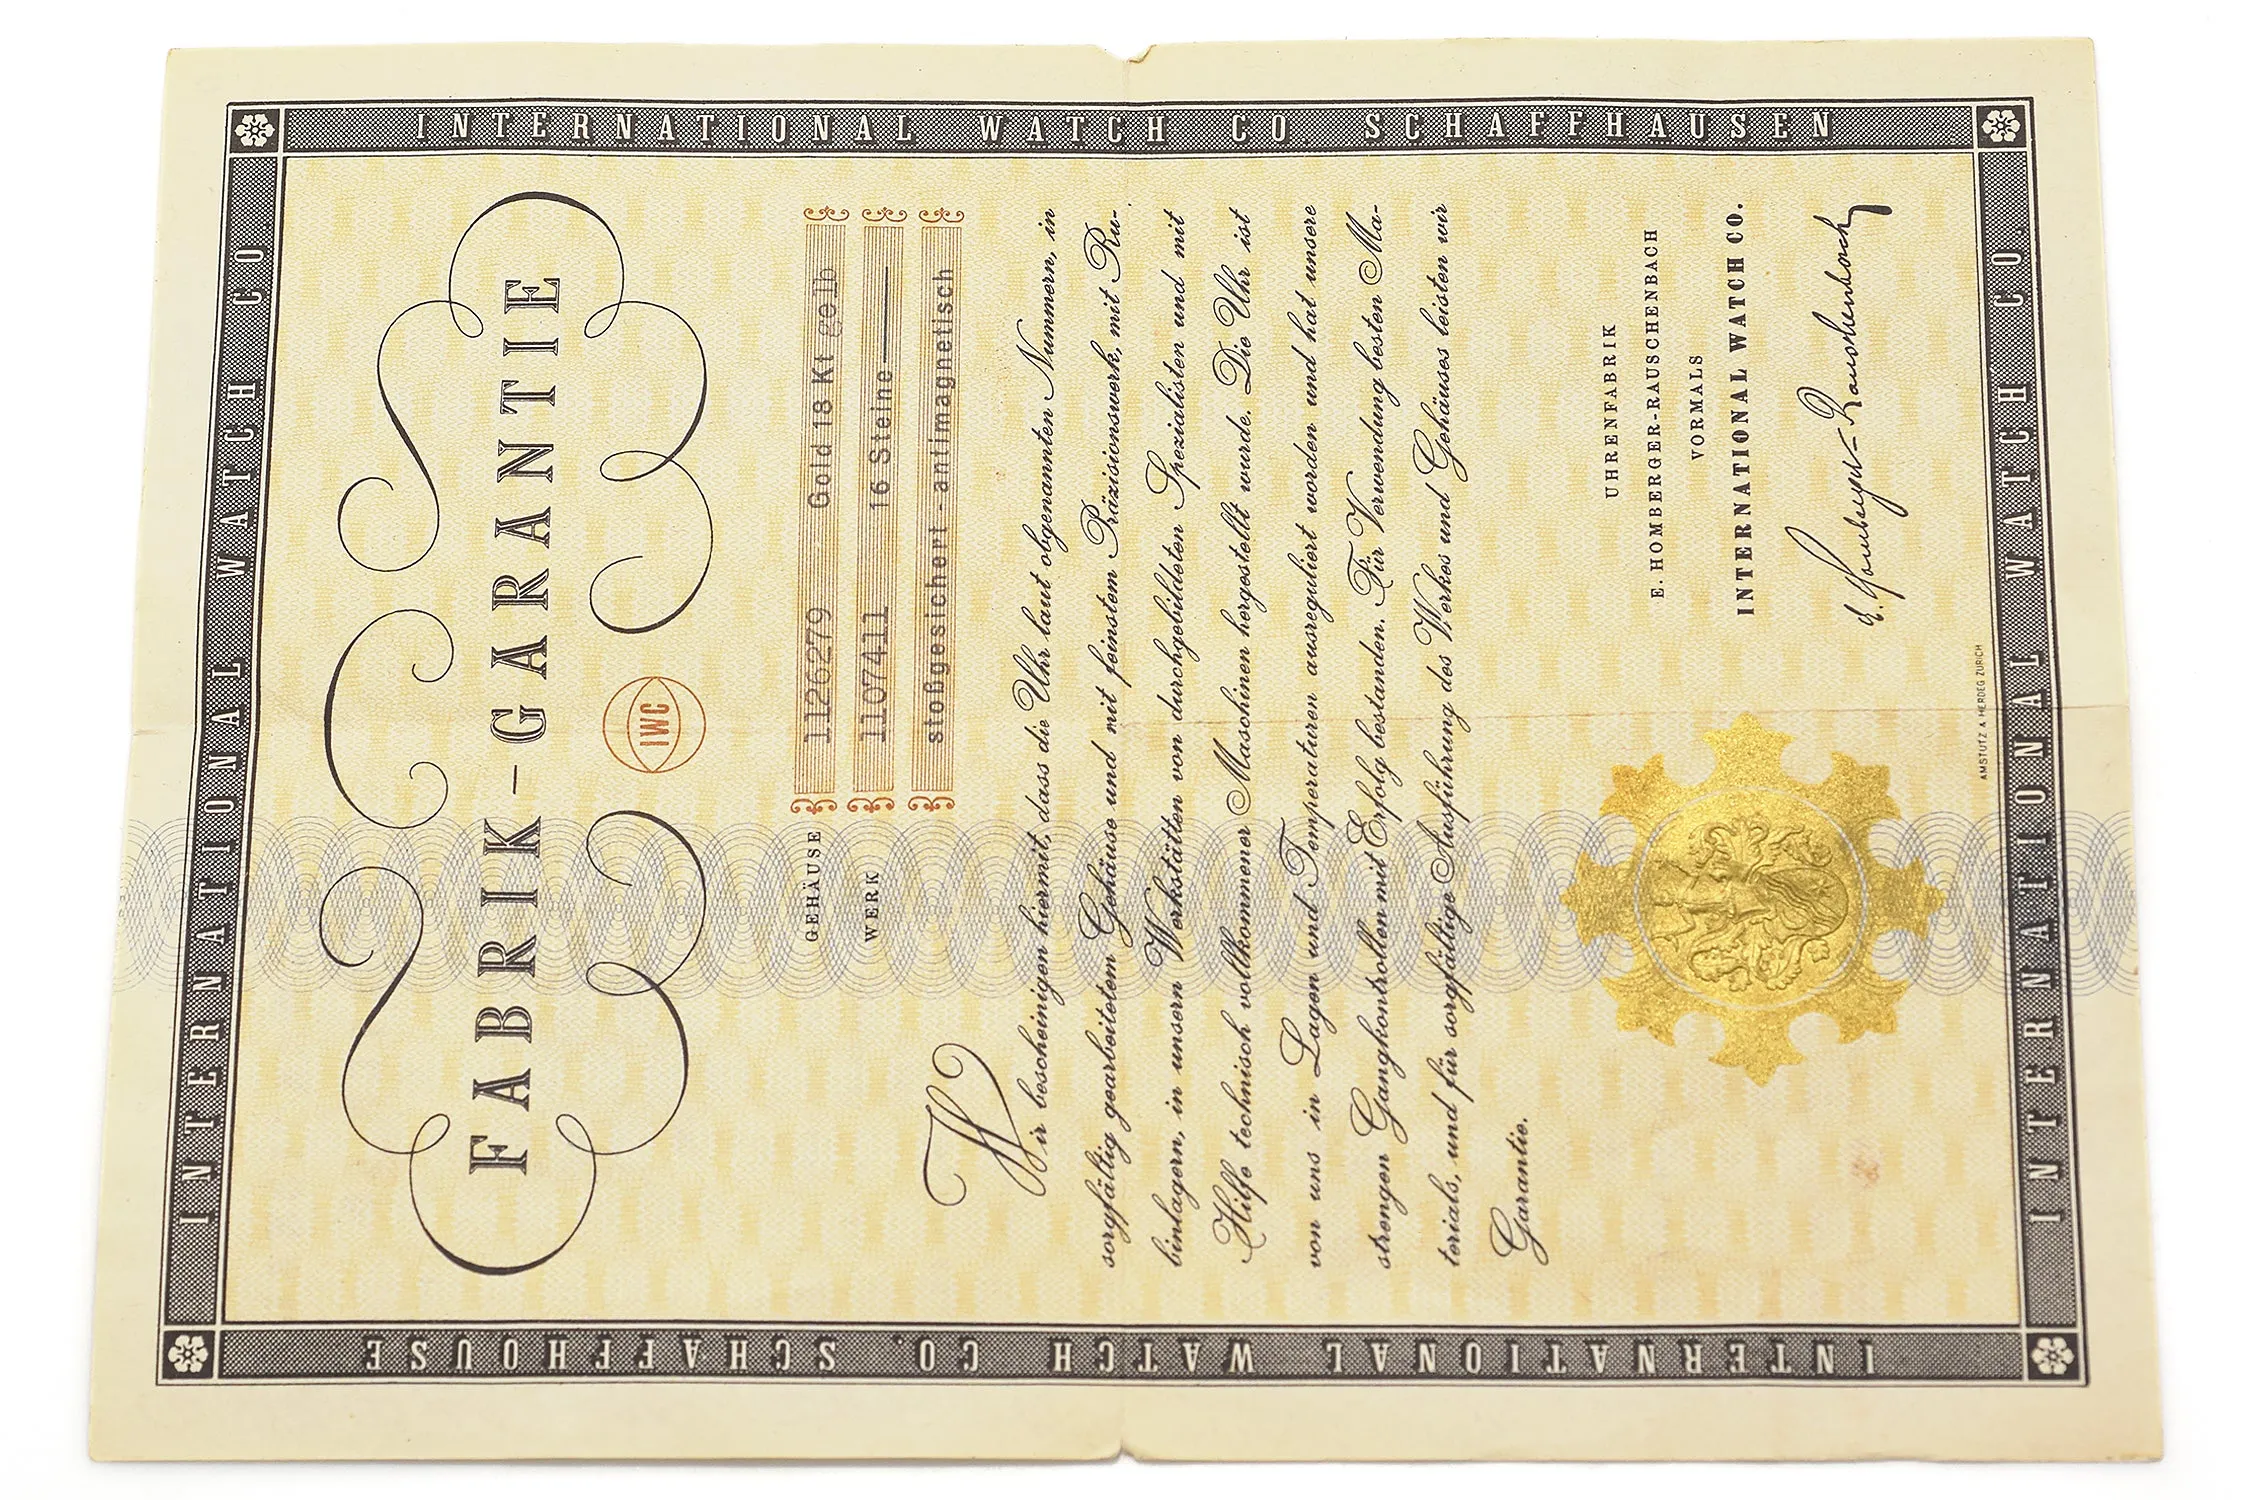 INTERNATIONAL WATCH CO
FABRIK-GARANTIE
IWC
GEHÄUSE 1126279 Gold 18 Kt gelb
WERK 1107411 16 Steine
stoßgesichert - antimagnetisch
Wir bescheinigen hiermit, dass die Uhr laut obgenannten Nummern, in
sorgfältig gearbeitetem Gehäuse und mit feinstem Präzisionswerk, mit Ru-
binlagern, in unsern Werkstätten von durchgebildeten Spezialisten und mit
Hilfe technisch vollkommener Maschinen hergestellt wurde. Die Uhr ist
von uns in Lagen und Temperaturen ausreguliert worden und hat unsere
strengen Gangkontrollen mit Erfolg bestanden. Für Verwendung besten Ma-
terials, und für sorgfältige Ausführung des Werkes und Gehäuses leisten wir
Garantie.
UHRENFABRIK
E. HOMBERGER-RAUSCHENBACH
VORMALS
INTERNATIONAL WATCH CO.
E. Homberger-Rauschenbach
AMSTUTZ & HERDEG ZÜRICH
INTERNATIONAL WATCH CO.
INTERNATIONAL WATCH CO. SCHAFFHOUSE
INTERNATIONAL WATCH CO SCHAFFHAUSEN